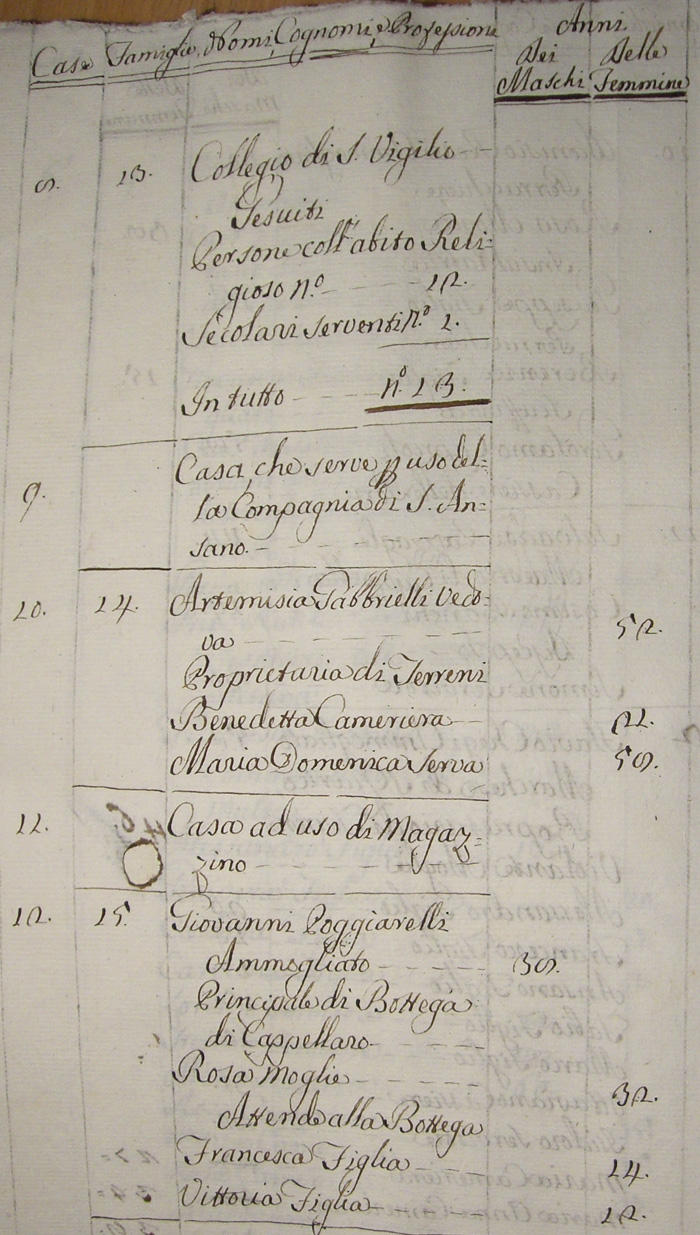 Case Famiglie, Nomi, Cognomi, e Professione Anni
Dei Maschi Delle Femmine
8. 13. Collegio di S. Vigilio
Gesuiti
Persone coll'abito Reli=
gioso n.º 12.
Secolari serventi n.º 1.
In tutto n.º 13.
9. Casa, che serve p uso del=
la Compagnia di S. An=
sano.
10. 14. Artemisia Gabbrielli Vedo=
va 52.
Proprietaria di Terreni
Benedetta Cameriera 21.
Maria Domenica Serva 58.
11. Casa ad uso di Magaz=
zino
12. 15. Giovanni Poggiarelli
Ammogliato 38.
Principale di Bottega
di Cappellaro
Rosa Moglie 32.
Attende alla Bottega
Francesca Figlia 14.
Vittoria Figlia 12.